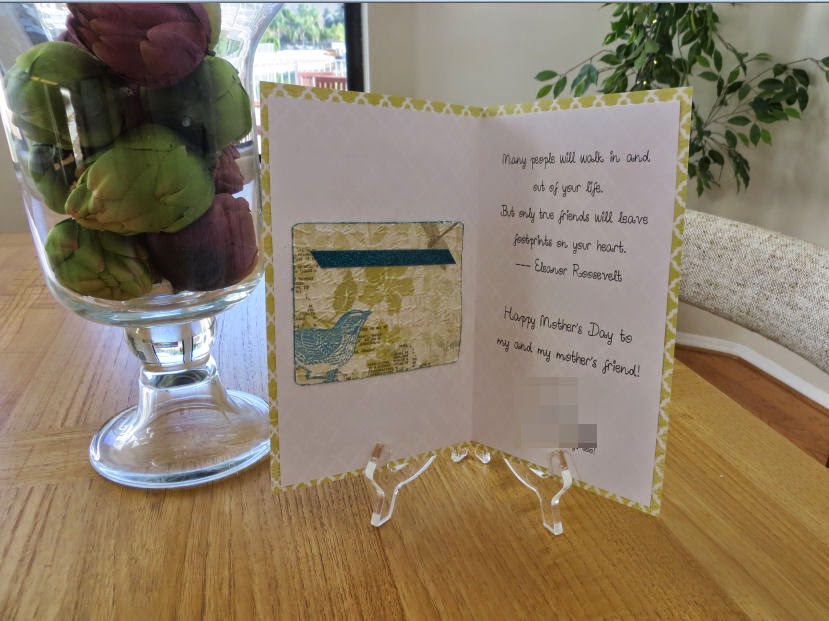 Many people will walk in and
out of your life.
But only true friends will leave
footprints on your heart.
--- Eleanor Roosevelt
Happy Mother's Day to
my and my mother's friend!